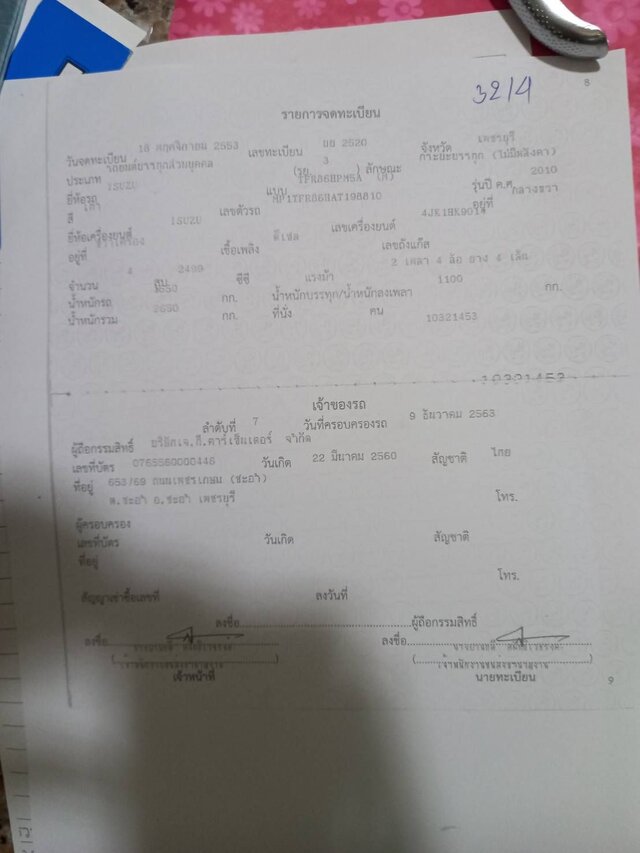 3214
8
รายการจดทะเบียน
วันจดทะเบียน 16 พฤศจิกายน 2553 เลขทะเบียน 2520 จังหวัด เพชรบุรี
ประเภท รถยนต์บรรทุกส่วนบุคคล (รย 3 ) ลักษณะ กระบะบรรทุก (ไม่มีหลังคา)
ยี่ห้อรถ ISUZU แบบ รุ่นปี ค.ศ. 2010
สี เทา เลขตัวรถ MP1TFR86HAT198810 อยู่ที่ กลางขวา
ยี่ห้อเครื่องยนต์ ISUZU เลขเครื่องยนต์
อยู่ที่ เชื้อเพลิง ดีเซล เลขถังแก๊ส
จำนวน 4 สูบ 2499 ซีซี แรงม้า 2 เพลา 4 ล้อ ยาง 4 เส้น
น้ำหนักรถ กก. น้ำหนักบรรทุก/น้ำหนักลงเพลา 1100 กก.
น้ำหนักรวม กก. ที่นั่ง คน 10321453
10321453
เจ้าของรถ
ลำดับที่ 7 วันที่ครอบครองรถ 9 ธันวาคม 2563
ผู้ถือกรรมสิทธิ์ จำกัด
เลขที่บัตร 0765560000446 วันเกิด 22 มีนาคม 2560 สัญชาติ ไทย
ที่อยู่ 653/69 ถนนเพชรเกษม (ชะอำ)
ต.ชะอำ อ.ชะอำ เพชรบุรี โทร.
ผู้ครอบครอง
เลขที่บัตร วันเกิด สัญชาติ
ที่อยู่
โทร.
สัญญาเช่าซื้อเลขที่ ลงวันที่
ลงชื่อ ผู้ถือกรรมสิทธิ์
ลงชื่อ ลงชื่อ
เจ้าหน้าที่ นายทะเบียน
9